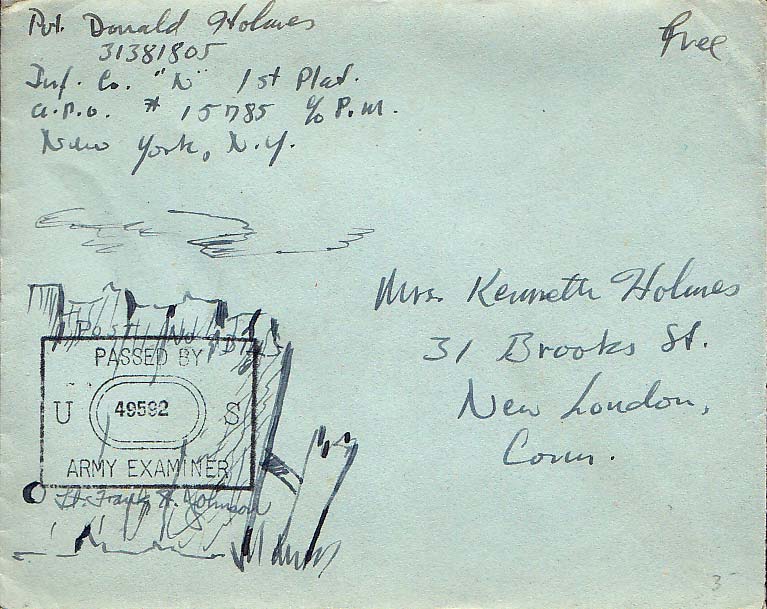 Pvt. Donald Holmes
31381805
Inf. Co. "N" 1st Plat.
A.P.O. # 15785 c/o P.M.
New York, N.Y.
Free
Mrs. Kenneth Holmes
31 Brooks St.
New London,
Conn.
PASSED BY
U 49592 S
ARMY EXAMINER
Lt. Frank H. Johnson
3